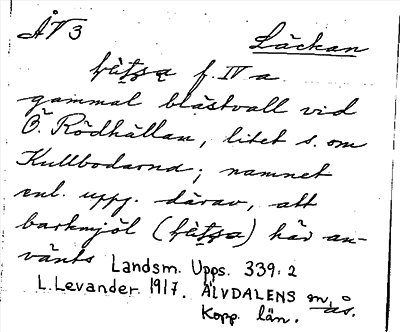 ÅV3
Läckan
f. IV a
gammal blästvall vid
Ö. Rödhällan, litet s. om
Kullbodarna; namnet
enl. uppg. därav, att
barkmjöl ( ) här an-
vänts
Landsm. Upps. 339:2
L. Levander 1917. ÄLVDALENS m, ås.
Kopp. län.